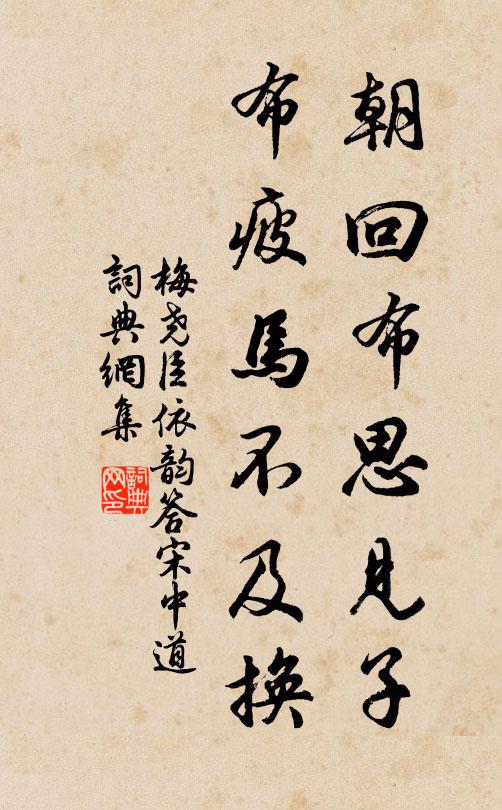 朝回布思見子
布疲馬不及換
梅堯臣依韵答宋中道
詞典網集
詞典
网印